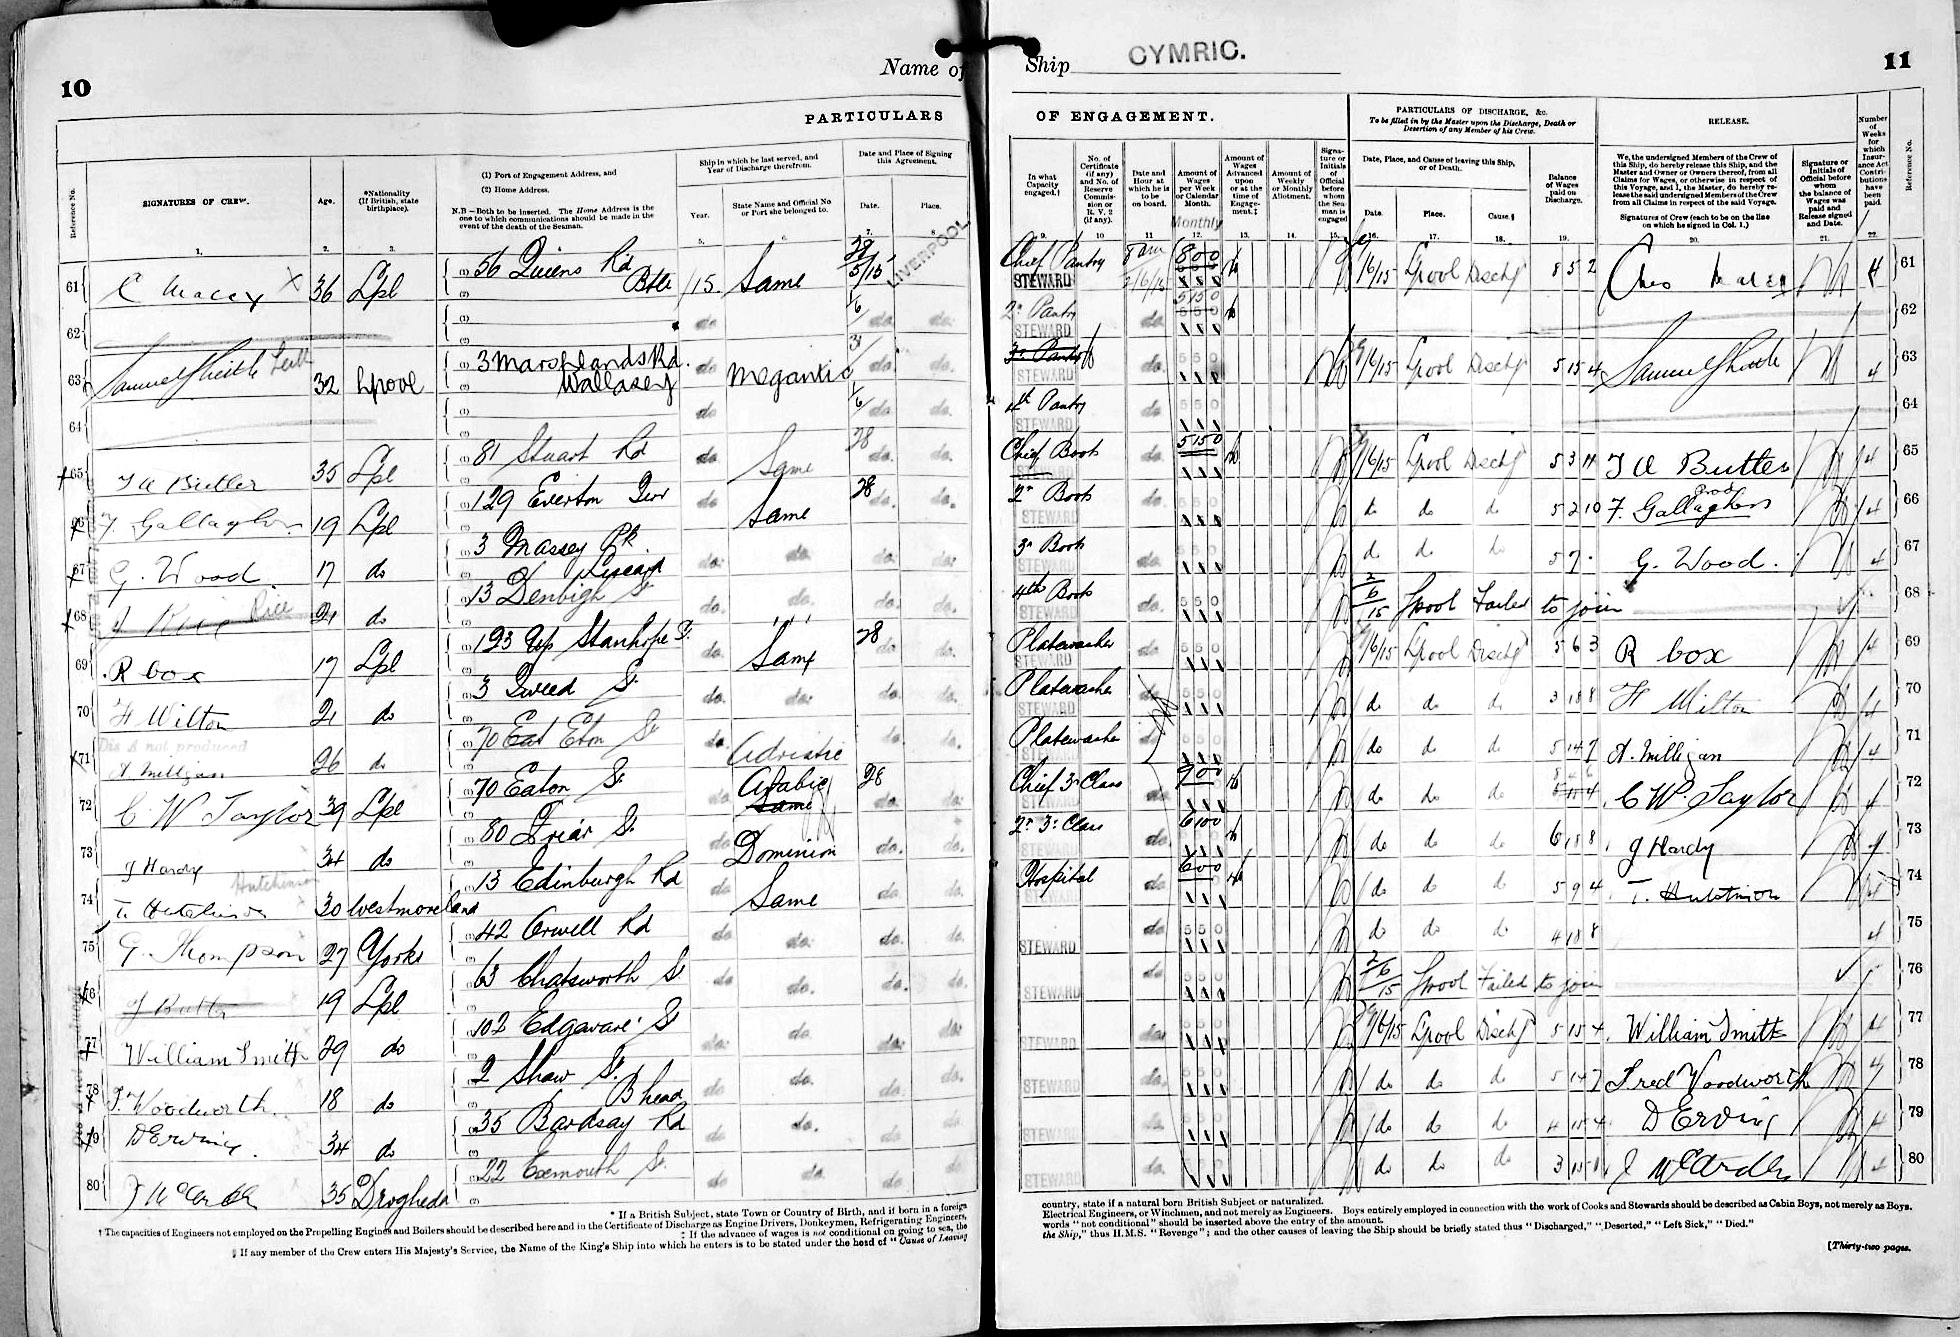 10
Name of Ship CYMRIC.
11
PARTICULARS OF ENGAGEMENT.
PARTICULARS OF DISCHARGE, &c.
To be filled in by the Master upon the Discharge, Death or Desertion of any Member of his Crew.
RELEASE.
Reference No.
SIGNATURES OF CREW.
Age.
*Nationality (If British, state birthplace).
(1) Port of Engagement Address, and
(2) Home Address.
N.B—Both to be inserted. The Home Address is the one to which communications should be made in the event of the death of the Seaman.
Ship in which he last served, and Year of Discharge therefrom.
Year.
State Name and Official No or Port she belonged to.
Date and Place of Signing this Agreement.
Date.
Place.
In what Capacity engaged.†
No. of Certificate (if any) and No. of Reserve Commission or R. V. 2 (if any).
Date and Hour at which he is to be on board.
Amount of Wages per Week or Calendar Month.
Monthly
Amount of Wages Advanced upon or at the time of Engagement.‡
Amount of Weekly or Monthly Allotment.
Signature or Initials of Official before whom the Seaman is engaged
Date, Place, and Cause of leaving this Ship, or of Death.
Date.
Place.
Cause.§
Balance of Wages paid on Discharge.
We, the undersigned Members of the Crew of this Ship, do hereby release this Ship, and the Master and Owner or Owners thereof, from all Claims for Wages, or otherwise in respect of this Voyage, and I, the Master, do hereby release the said undersigned Members of the Crew from all Claims in respect of the said Voyage.
Signatures of Crew (each to be on the line on which he signed in Col. 1.)
Signature or Initials of Official before whom the balance of Wages was paid and Release signed and Date.
Number of Weeks for which Insurance Act Contributions have been paid.
Reference No.
61 C Macey X 36 Lpl 56 Queens Rd Btle /15. Same 5/15 LIVERPOOL Chief Pantry STEWARD 8 am 2/6/15 800 /6/15 Lpool Dischg 8 5 2 Chas Macey 4 61
62 do do. do. 2nd Pantry STEWARD do. 5150 62
63 Samuel Keith 32 Lpool 3 Marshlands Rd. Wallasey do Megantic do. do. 3rd Pantry STEWARD do. 550 /6/15 Lpool Dischg 5 15 4 4 63
64 do do. do. 4th Pantry STEWARD do. 550 64
65 J A Butler 35 Lpl 81 Stuart Rd do Same 28 do. Chief Boots STEWARD do. 5150 /6/15 Lpool Dischg 5 3 11 J A Butler 4 65
66 F. Gallagher 19 Lpl 129 Everton Terr do. Same 28 do. 2nd Boots STEWARD do. 550 do do do 5 2 10 F. Gallaghers 4 66
67 G. Wood. 17 do 3 Massey Pk. Liscard do. do. do. do. 3rd Boots STEWARD do. 550 do do do 5 7 - G. Wood. 4 67
68 Rice 21 do 13 Denbigh St do. do. do. do. 4th Boots STEWARD do. 550 2/6/15 Lpool Failed to join 68
69 R Cox 17 Lpl 193 Up Stanhope St. do. Same 28 do. Platewasher STEWARD do. 550 /6/15 Lpool Dischg 5 6 3 R Cox 4 69
70 H Wilton 21 do 3 Tweed St do. do. do. do. Platewasher STEWARD do. 550 do do do 3 18 8 H Wilton 4 70
71 Dis A not produced A Milligan 26 do 70 Eat Eton St do. Adriatic do. do. Platewasher STEWARD do. 550 do do do 5 14 7 A. Milligan 4 71
72 C. W Taylor 39 Lpl 70 Eaton St do. Arabic Same 28 do. Chief 3rd Class STEWARD do. 700 do do do C W. Taylor 4 72
73 J Hardy 34 do 80 Friar St. do. Dominion do. do. 2nd 3rd Class STEWARD do. 6100 do do do 6 18 8 J Hardy 4 73
74 T. Hutchinson Hutchinson 30 Westmoreland 13 Edinburgh Rd do Same do. do. Hospital STEWARD do. 600 do do do 5 9 4 T. Hutchinson 74
75 G. Thompson 27 Yorks 42 Orwell Rd do do. do. do. STEWARD do. 550 do do do 4 18 8 4 75
76 J Butler 19 Lpl 63 Chatsworth St do do. do. do. STEWARD do 550 2/6/15 Lpool Failed to join 76
77 William Smith 29 do 102 Edgware St do do. do. do. STEWARD do. 550 /6/15 Lpool Dischg 5 15 4 William Smith 4 77
78 F. Woodworth. 18 do 2 Shaw St. B head do do. do do. STEWARD do. 550 do do do 5 14 7 Fred Woodworth 4 78
79 D Erving. 34 do 35 Bardsay Rd do do. do do. STEWARD do. do do do 4 18 4 D Erving 4 79
80 J McArdle 35 Drogheda 22 Exmouth St. do do. do. do. STEWARD do. do do do 3 15 J McArdle 4 80
* If a British Subject, state Town or Country of Birth, and if born in a foreign country, state if a natural born British Subject or naturalized.
† The capacities of Engineers not employed on the Propelling Engines and Boilers should be described here and in the Certificate of Discharge as Engine Drivers, Donkeymen, Refrigerating Engineers, Electrical Engineers, or Winchmen, and not merely as Engineers. Boys entirely employed in connection with the work of Cooks and Stewards should be described as Cabin Boys, not merely as Boys.
‡ If the advance of wages is not conditional on going to sea, the words "not conditional" should be inserted above the entry of the amount.
§ If any member of the Crew enters His Majesty's Service, the Name of the King's Ship into which he enters is to be stated under the head of "Cause of Leaving the Ship," thus H.M.S. "Revenge"; and the other causes of leaving the Ship should be briefly stated thus "Discharged," "Deserted," "Left Sick," "Died."
[Thirty-two pages.